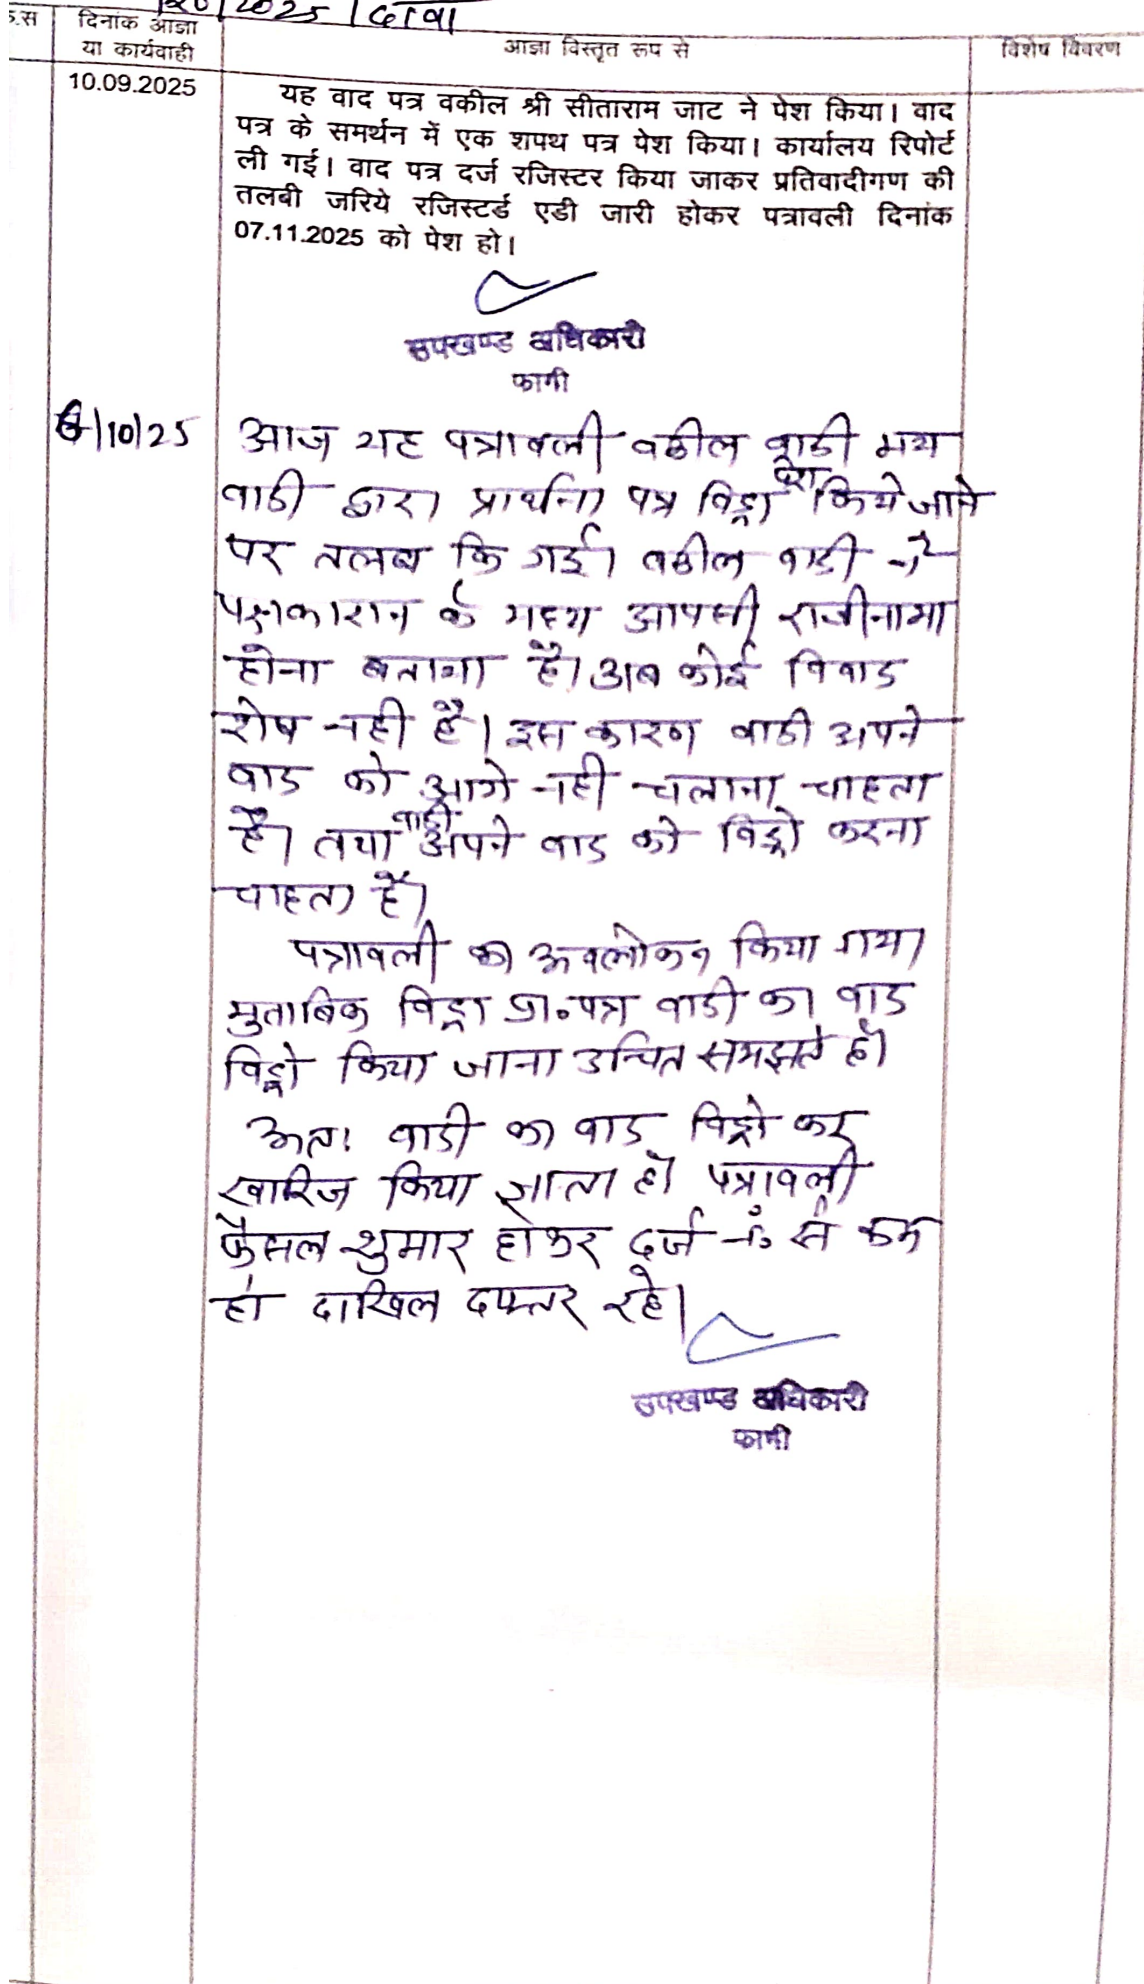 /2025 / दावा
क्र.स दिनांक आज्ञा या कार्यवाही आज्ञा विस्तृत रूप से विशेष विवरण
10.09.2025
यह वाद पत्र वकील श्री सीताराम जाट ने पेश किया। वाद
पत्र के समर्थन में एक शपथ पत्र पेश किया। कार्यालय रिपोर्ट
ली गई। वाद पत्र दर्ज रजिस्टर किया जाकर प्रतिवादीगण की
तलबी जरिये रजिस्टर्ड एडी जारी होकर पत्रावली दिनांक
07.11.2025 को पेश हो।
उपखण्ड अधिकारी
फागी
6/10/25 आज यह पत्रावली वकील वादी मय
वादी द्वारा प्रार्थना पत्र विड्रा पेश किये जाने
पर तलब कि गई। वकील वादी ने
पक्षकारान के मध्य आपसी राजीनामा
होना बताया है। अब कोई विवाद
शेष नही है। इस कारण वादी अपने
वाद को आगे नही चलाना चाहता
है। तथा वादी अपने वाद को विड्रो करना
चाहता है।
पत्रावली का अवलोकन किया गया
मुताबिक विड्रा प्रा०पत्र वादी का वाद
विड्रो किया जाना उचित समझते है।
अतः वादी का वाद विड्रो कर
खारिज किया जाता है। पत्रावली
फैसल शुमार होकर दर्ज नं० से कम
हो दाखिल दफ्तर रहे।
उपखण्ड अधिकारी
फागी